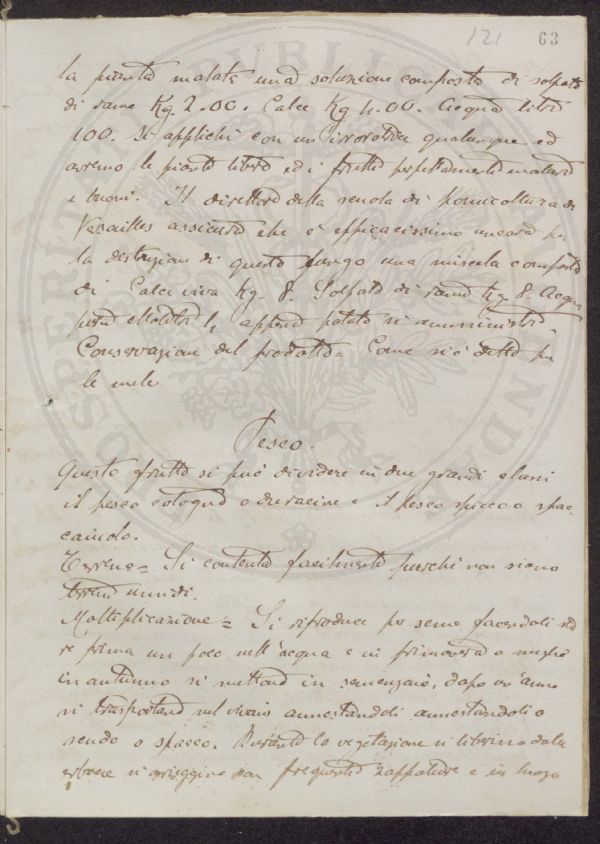 121 63
la pianta malata una soluzione composta di solfato
di rame Kg. 2.00. Calce Kg 4.00. Acqua litri
100. Si applichi con un irroratrice qualunque ed
avremo le piante libere ed i frutti perfettamente maturi
e buoni. Il direttore della scuola di pomicoltura di
Versailles assicura che è efficacissimo ancora per
la distruzione di questo fungo una miscela composta
di Calce viva Kg. 8. Solfato di rame Kg. 8. Acqua
pura appena potato si amministra.
Conservazione del prodotto = Come si è detto per
le mele
Pesco.
Questo frutto si può dividere in due grandi classi
il pesco cotogno o duracine e il pesco spicco o spac-
caiuolo.
Terreno = Si contenta facilmente purchè non siano
terreni umidi.
Moltiplicazione = Si riproduce per seme facendoli
prima un poco nell'acqua e in primavera o meglio
in autunno si mettono in semenzaio, dopo un anno
si trasportano nel vivaio annestandoli annestandoli a
scudo o spacco. Durante la vegetazione si liberino dalle
erbacce si arieggino con frequenti zappature e in luogo